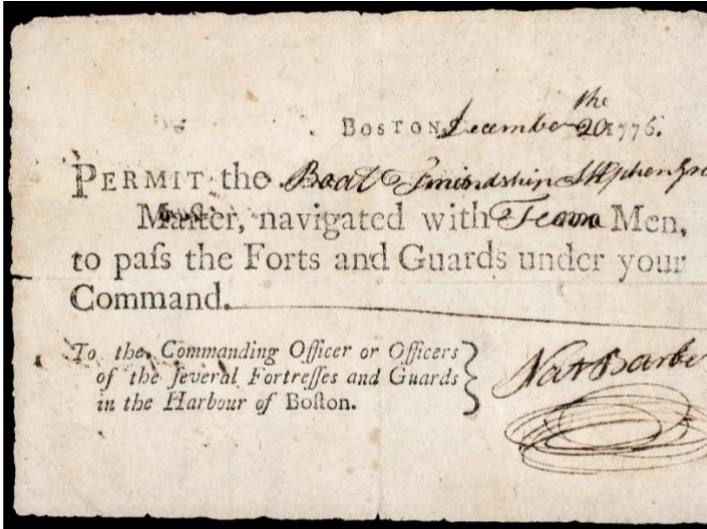 the
BOSTON, December 20 1776.
PERMIT the Boat Friendship Stephen
Maſter, navigated with Men,
to paſs the Forts and Guards under your
Command.
To the Commanding Officer or Officers
of the ſeveral Fortreſſes and Guards
in the Harbour of Boſton.
Nat Barbe